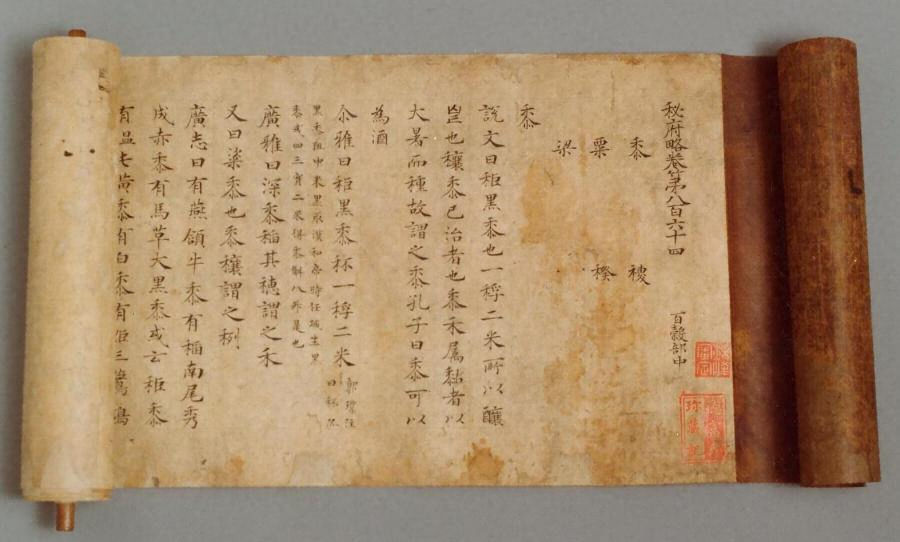 秘府略巻第八百六十四 百穀部中
黍 稷
粟
梁
黍
說文曰秬黑黍也一稃二米所以釀
鬯也穰黍已治者也黍禾属黏者以
大暑而種故謂之黍孔子曰黍可以
為酒
尒雅曰秬黑黍秠一稃二米 郭璞注
曰秠亦
黑黍但中米異耳漢和帝時任城生黑
黍或四三實二米得黍斛八斗是也
廣雅曰深黍稻其穂謂之禾
又曰粢黍也黍穰謂之栵
廣志曰有燕頷牛黍有稻南尾秀
成赤黍有馬草大黑黍或云秬黍
有温屯黄黍有白黍有